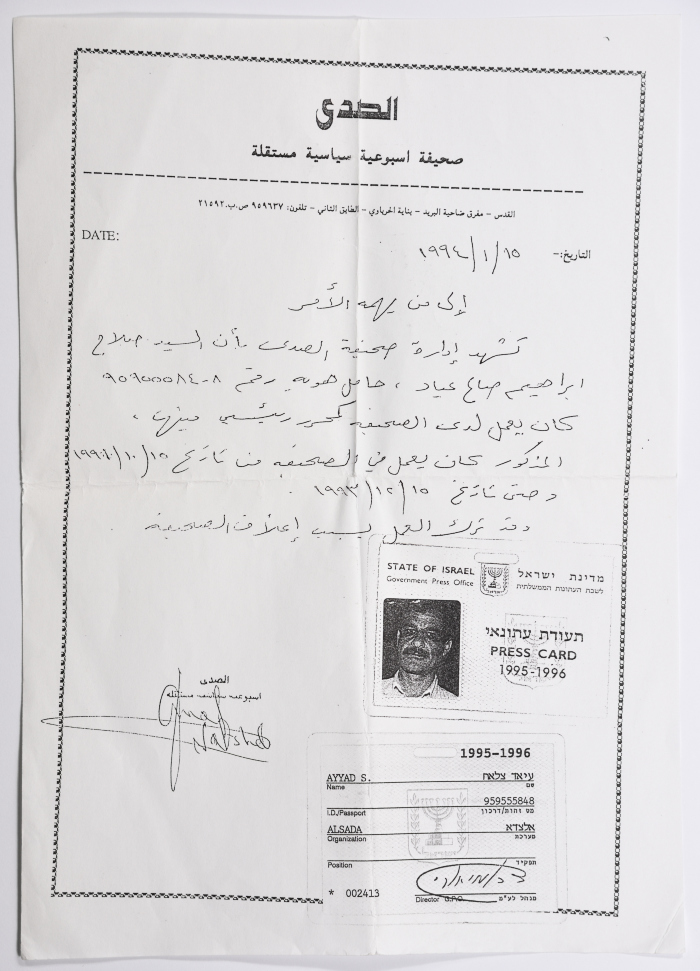 الصدى
صحيفة اسبوعية سياسية مستقلة
القدس - مفرق ضاحية البريد - بناية الحرباوي - الطابق الثاني - تلفون: ٩٥٩٦٣٧ ص.ب. ٢١٥٩٢
DATE:
التاريخ:- ١٥/١/١٩٩٤
إلى من يهمه الأمر
تشهد إدارة صحيفة الصدى بأن السيد صلاح
ابراهيم صالح عياد ، حامل هوية رقم
كان يعمل لدى الصحيفة كمحرر رئيسي فيها ،
المذكور كان يعمل في الصحيفة من تاريخ ١٥/١٠/
وحتى تاريخ ١٥/١٢/١٩٩٣ .
وقد ترك العمل بسبب إغلاق الصحيفة
STATE OF ISRAEL מדינת ישראל
Government Press Office לשכת העתונות הממשלתית
תעודת עתונאי
PRESS CARD
1995-1996
الصدى
اسبوعية سياسية مستقلة
1995-1996
AYYAD S. עיאד צלאח
Name שם
959555848
I.D./Passport מס זהות/דרכון
ALSADA אלצדא
Organization מערכת
Position תפקיד
* 002413
Director G.P.O. מנהל לע"מ